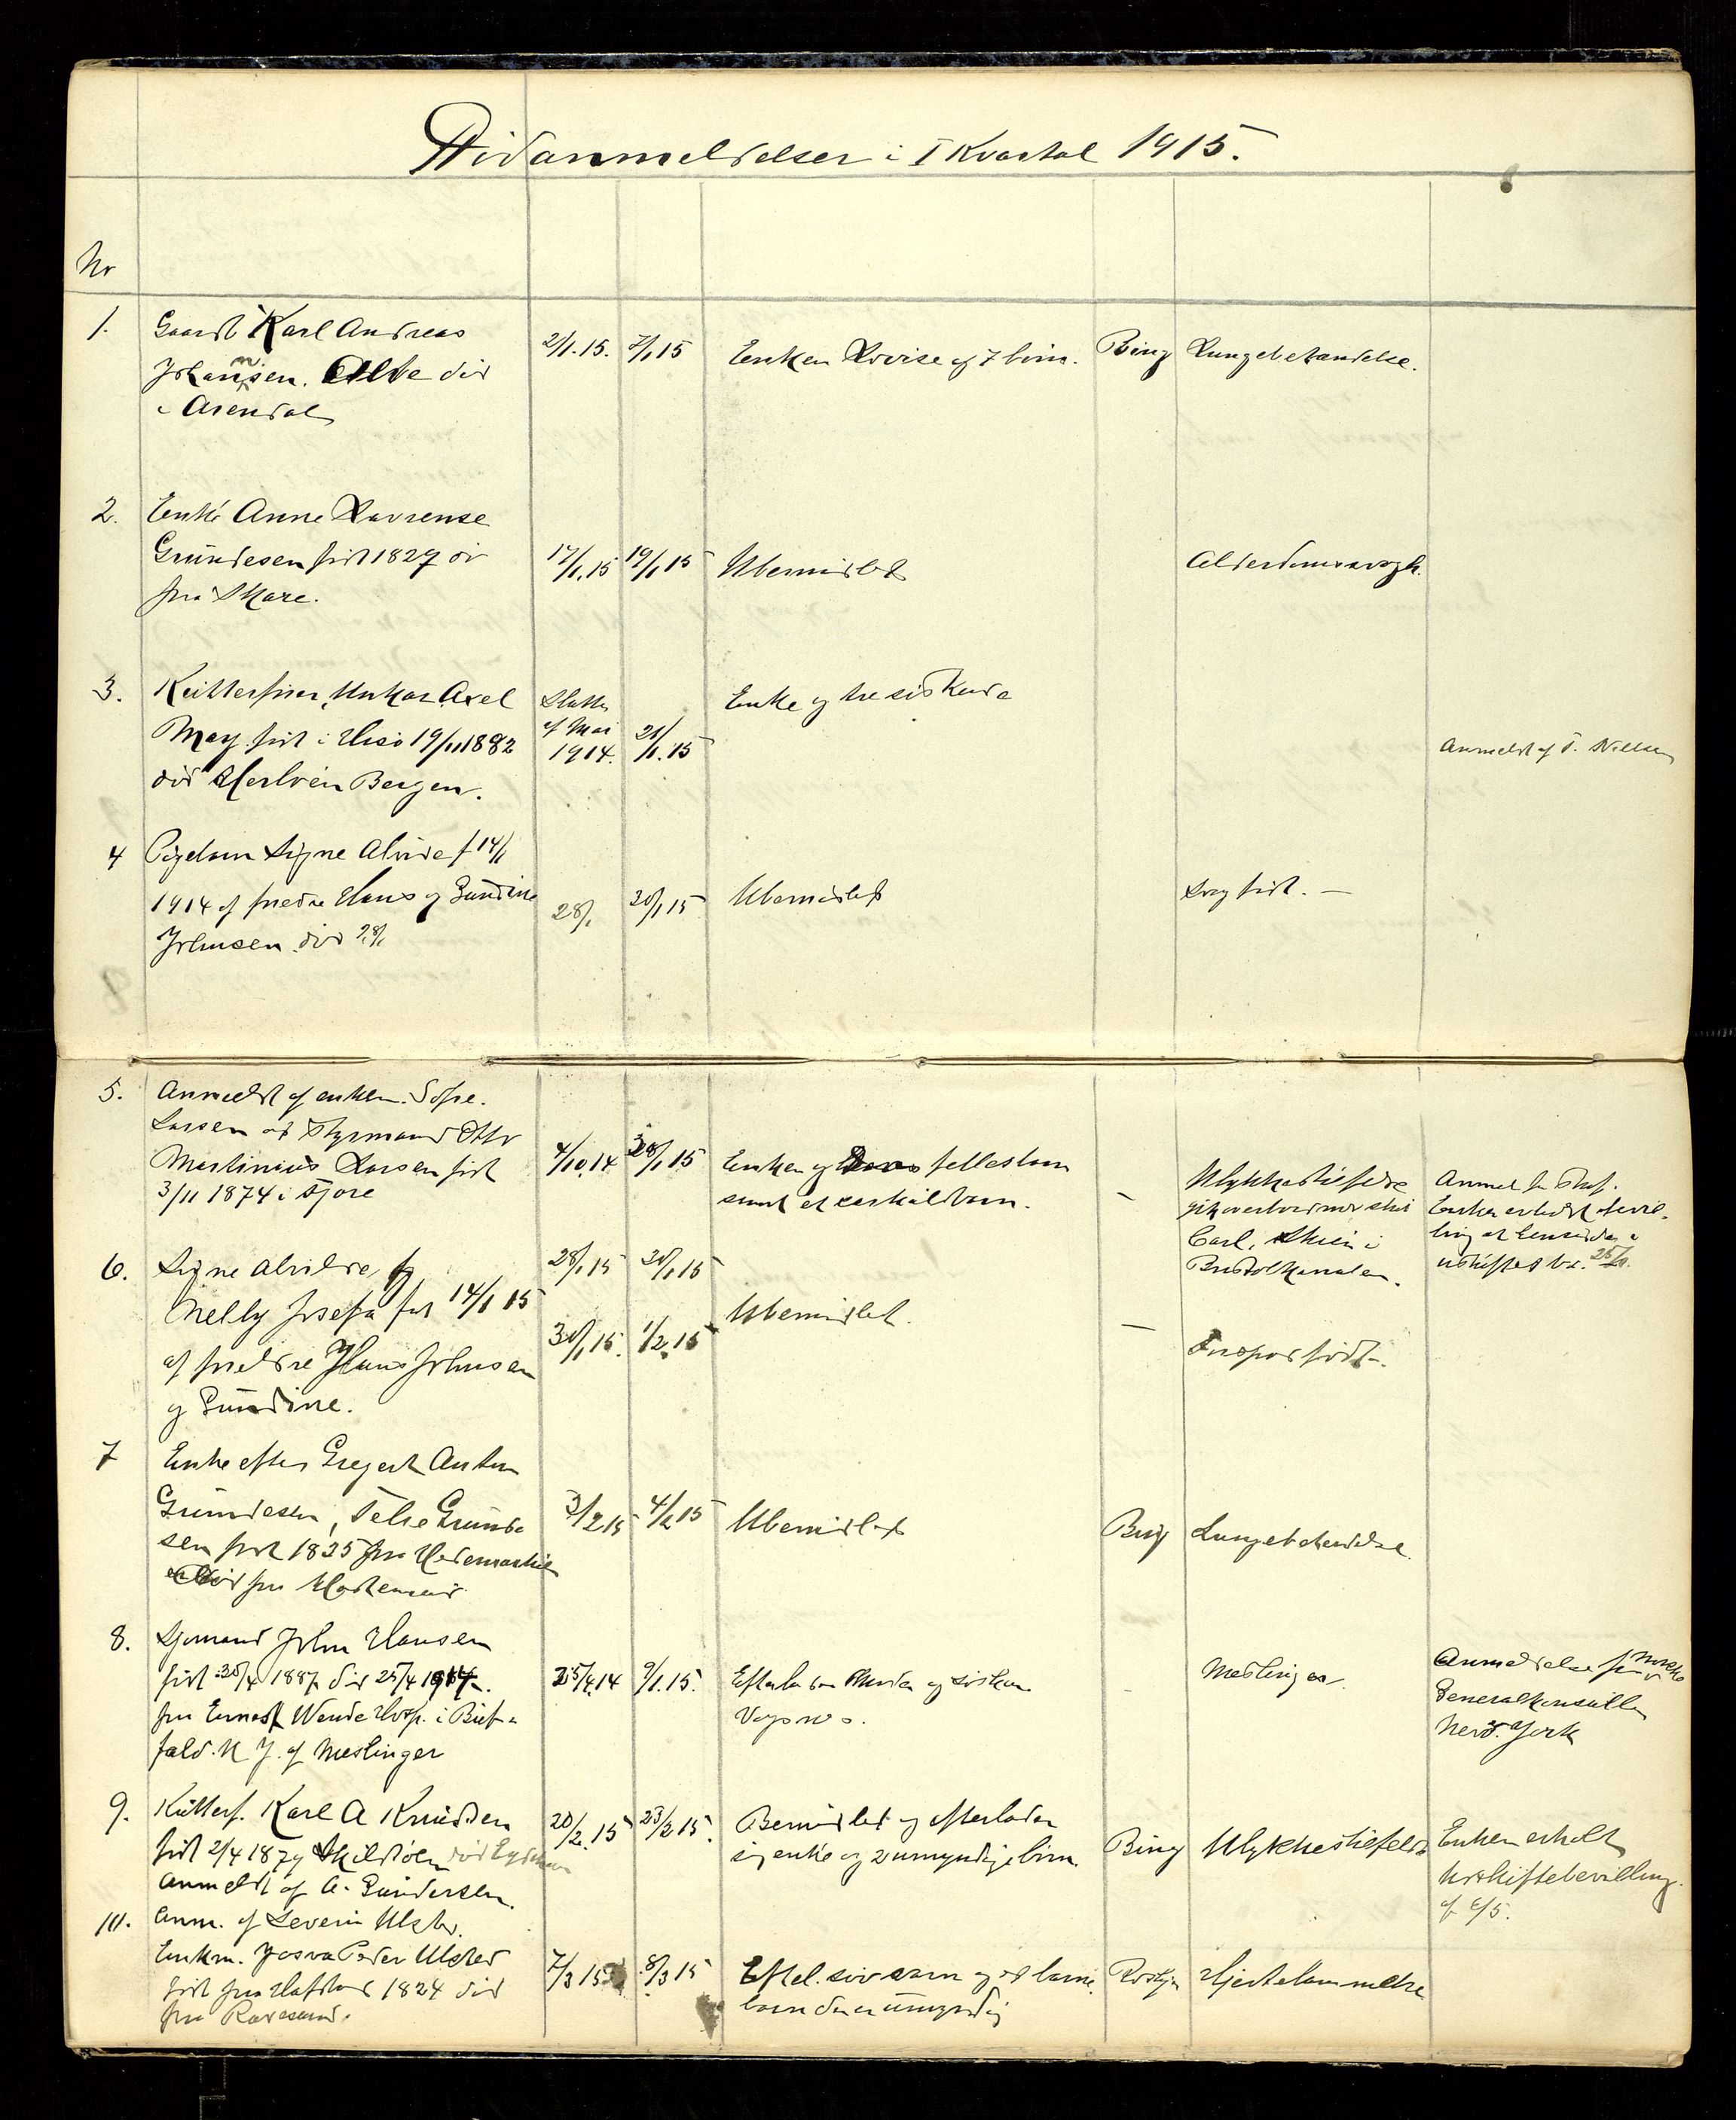 Dødanmeldelser i I Kvartal 1915.
Nr
1. Gaardb Karl Andreas
Johannsen. Alve død
i Arendal
2/1.15. 7/1 15
Enken Lovise og 7 børn.
Bing
Lungebetændelse.
2. Enke Anne Lavrense
Gundesen født 1827 død
fra Skare.
17/1.15 19/1 15
Ubemidlet
Alderdomssvagh.
3. Axel
May født i Hisø 19/11 1882
død Bergen.
Slutten
af Mai
1914.
21/1.15
Enke og tre søskende
Anmeldt af T. Nielsen
4 Pigebarn Signe Alvide f 14/1
1914 af forældre Hans og Gundine
Johnsen død 28/1
28/1
30/1 15
Ubemidlet
Svag født. —
5. Anmeldt af enken. Sofie.
Larsen at Styrmand Otto
Martinius Larsen født
3/11 1874 i Tjøre
4/10.14 28/1 15
Enken og fellesbarn
samt et særkulbarn.
-
Ulykkestilfelde
gik overbord
Carl, Skien i
Bristolkanalen.
Anmel
Enken
uskiftet bo. 25/
6. Signe Alvilde
Nelly Josefa født 14/1 15
af forældre Hans Johnsen
og Gundine.
28/1 15 30/1 15
30/1 15. 1/2.15
Ubemidlet.
—
født.
7 Enke efter Gregert Anton
Gundesen, Telse Gunde
sen født 1835 fra Hedemarken
død fra
3/2 15 4/2 15
Ubemidlet
Bing
Lungebetændelse.
8. Sjømand John Hansen
født 30/4 1887 død 25/4 1914.
fra Ernest Wende Hosp. i Buf-
falo. N Y. af Meslinger
25/4.14 9/1.15.
Efterlader Moder og søsken
-
Meslinger.
Anmeldelse fra Norske
Generalkonsulen
New. York
9. Kutterf. Karl A Knudsen
født 2/4 1879 Skilsøen død
Anmeldt af A. Gundersen.
20/2.15 23/2 15.
Bemidlet og efterlader
sig enke og 2 umyndige børn.
Bing
Ulykkestilfelde
Enken erholdt
Uskiftebevilling.
af 6/5.
10. Anm. af Severin Ulsted.
Enkm. Josva Peder Ulsted
født fra 1824 død
fra Ravesund.
7/3 15 8/3 15
Eftel. barn og et barne
barn der er umyndig
Hjertelammelse